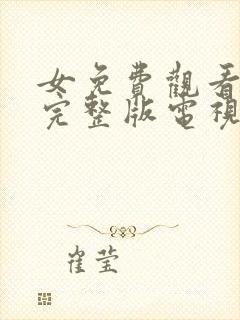 女免費觀看
完整版電視
崔莹